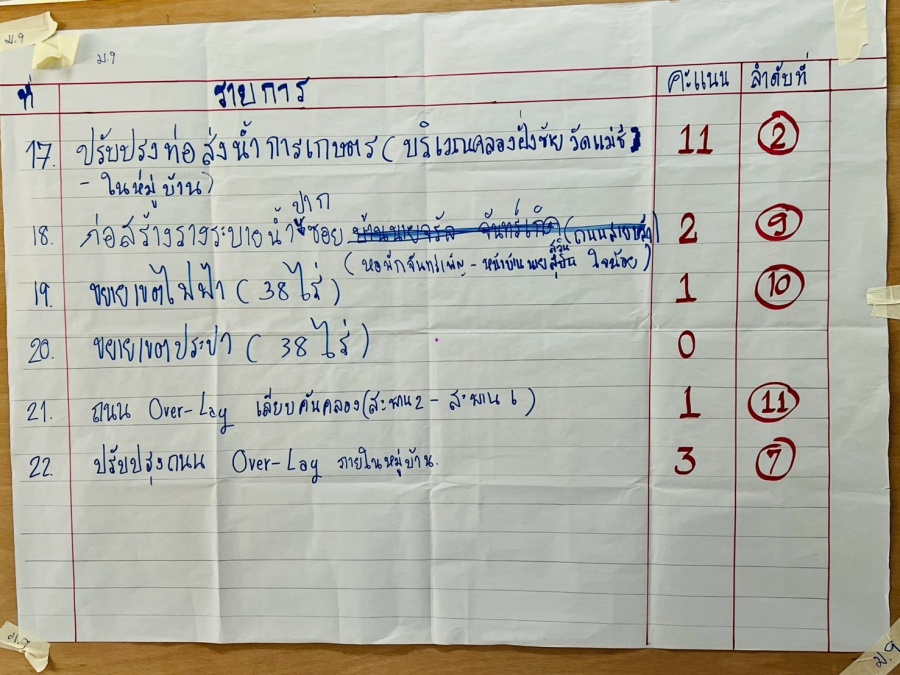 ม.9
ม.9
ที่ รายการ คะแนน ลำดับที่
17. ปรับปรุงท่อส่งน้ำการเกษตร (บริเวณคลองฝั่งซ้าย วัดแม่ชี 11 2
- ในหมู่บ้าน)
ปาก
18. ก่อสร้างรางระบายน้ำ ซอย (ถนนสาย 2 9
(หอพักจันทร์เพ็ญ - หน้าบ้านนาย ใจน้อย)
19. ขยายเขตไฟฟ้า (38 ไร่) 1 10
20. ขยายเขตประปา (38 ไร่) 0
21. ถนน Over-Lay เลียบคันคลอง (สะพาน 2 - สะพาน 6) 1 11
22. ปรับปรุงถนน Over-Lay ภายในหมู่บ้าน. 3 7
ม.9
ม.9